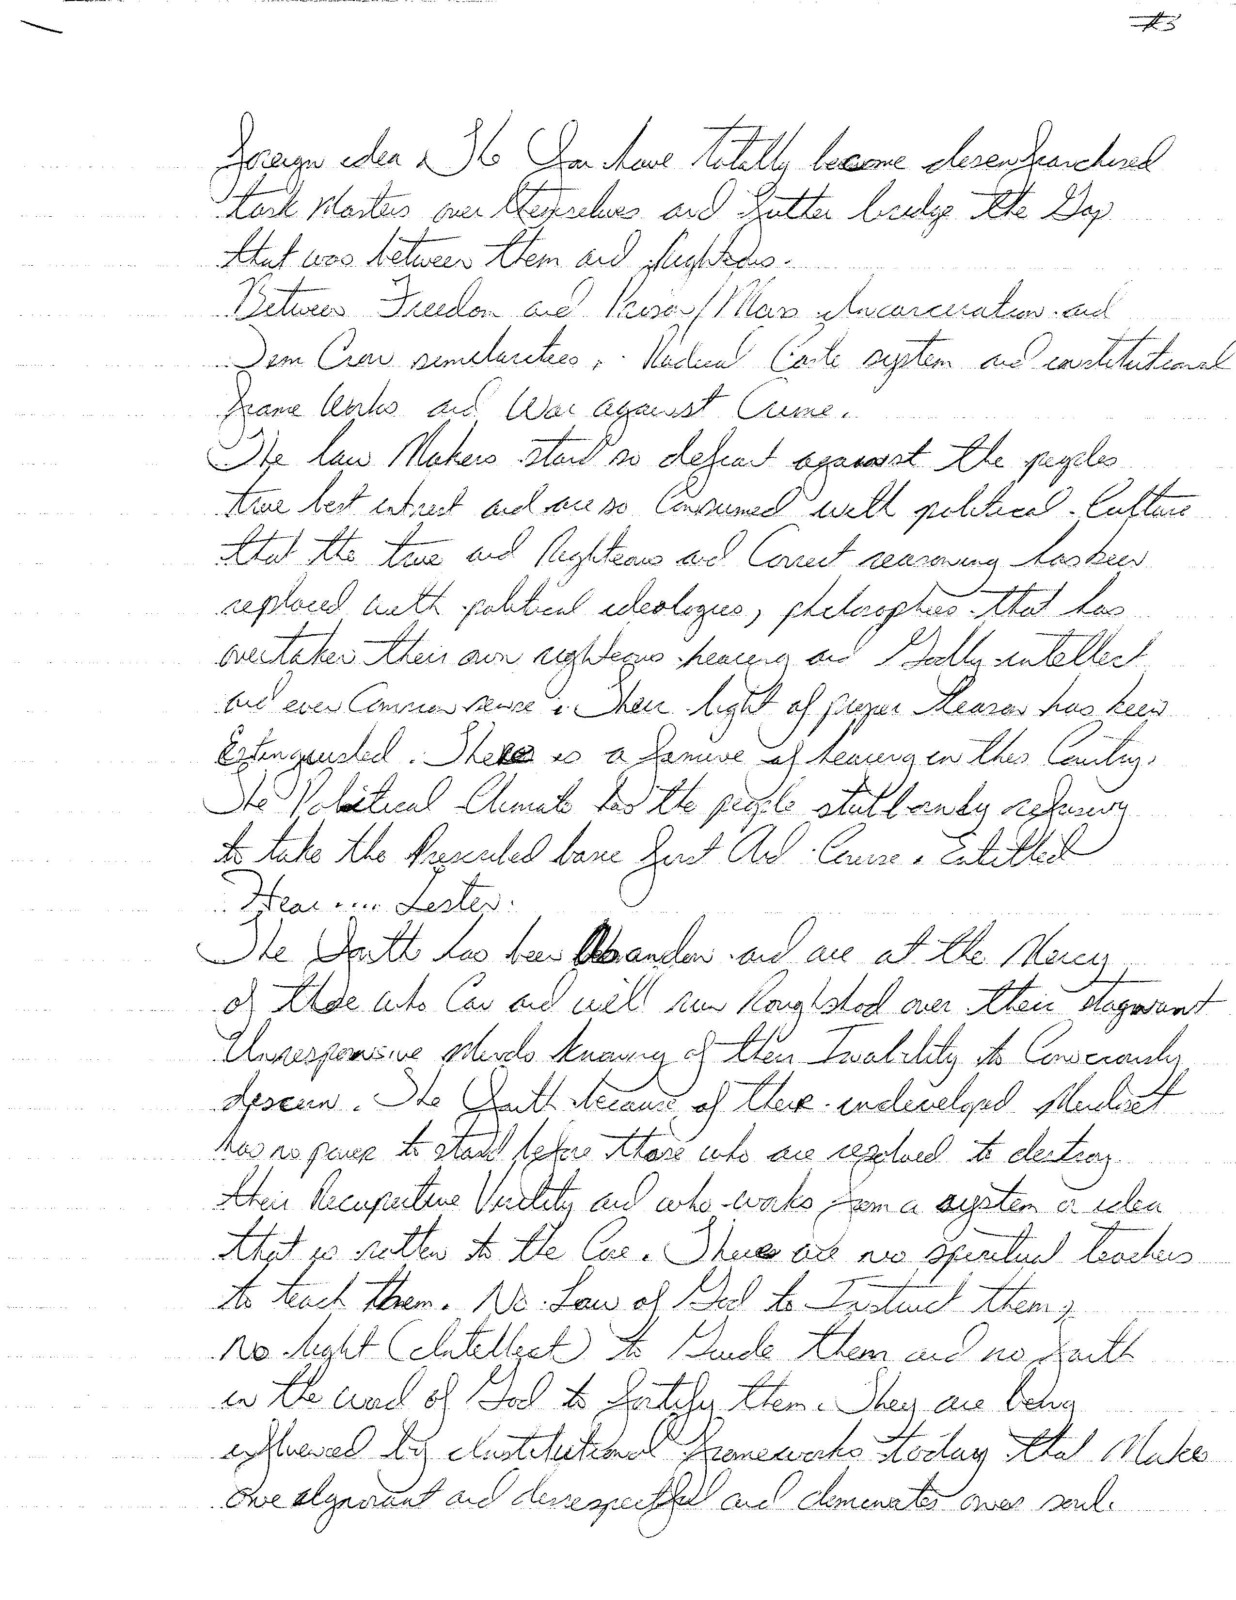 #3
foreign idea & The You have totally become desenfranchised
task Masters over themselves and futher bridge the Gap
that was between them and Righteous.
Between Freedom and Prison/Mass Incarceration and
Jem Crow similaritees, Radical Caste system and constitutional
frame Works and War against Crime.
The law Makers stand so defeant against the peoples
true best intrest and are so Consumed with political Culture
that the true and Righteous and Correct reasoning has been
replaced with political ideologies, philosophies that has
overtaken their own righteous hearing and Godly intellect
and even Common sense. Their light of proper Reason has been
Extinguished. There is a famine of hearing in this Country.
The Political Climate has the people stubbornly refusing
to take the Prescribed basic first Aid Course. Entitled
Hear .... Listen.
The Youth has been Abandon and are at the Mercy
of those who Can and will run Roughshod over their stagnant
Unresponsive Minds knowing of their Inability to Consciously
descern. The Youth because of there undeveloped Mindset
has no power to stand before those who are resolved to destroy
their Recupertive Virility and who works from a system or idea
that is rotten to the Core. There are no spiritual teachers
to teach them. No Law of God to Instruct them;
no light (Intellect) to Guide them and no faith
in the word of God to fortify them. They are being
influenced by Institutional frameworks today that Makes
one Ignorant and desrespectful and domenates ones soul.